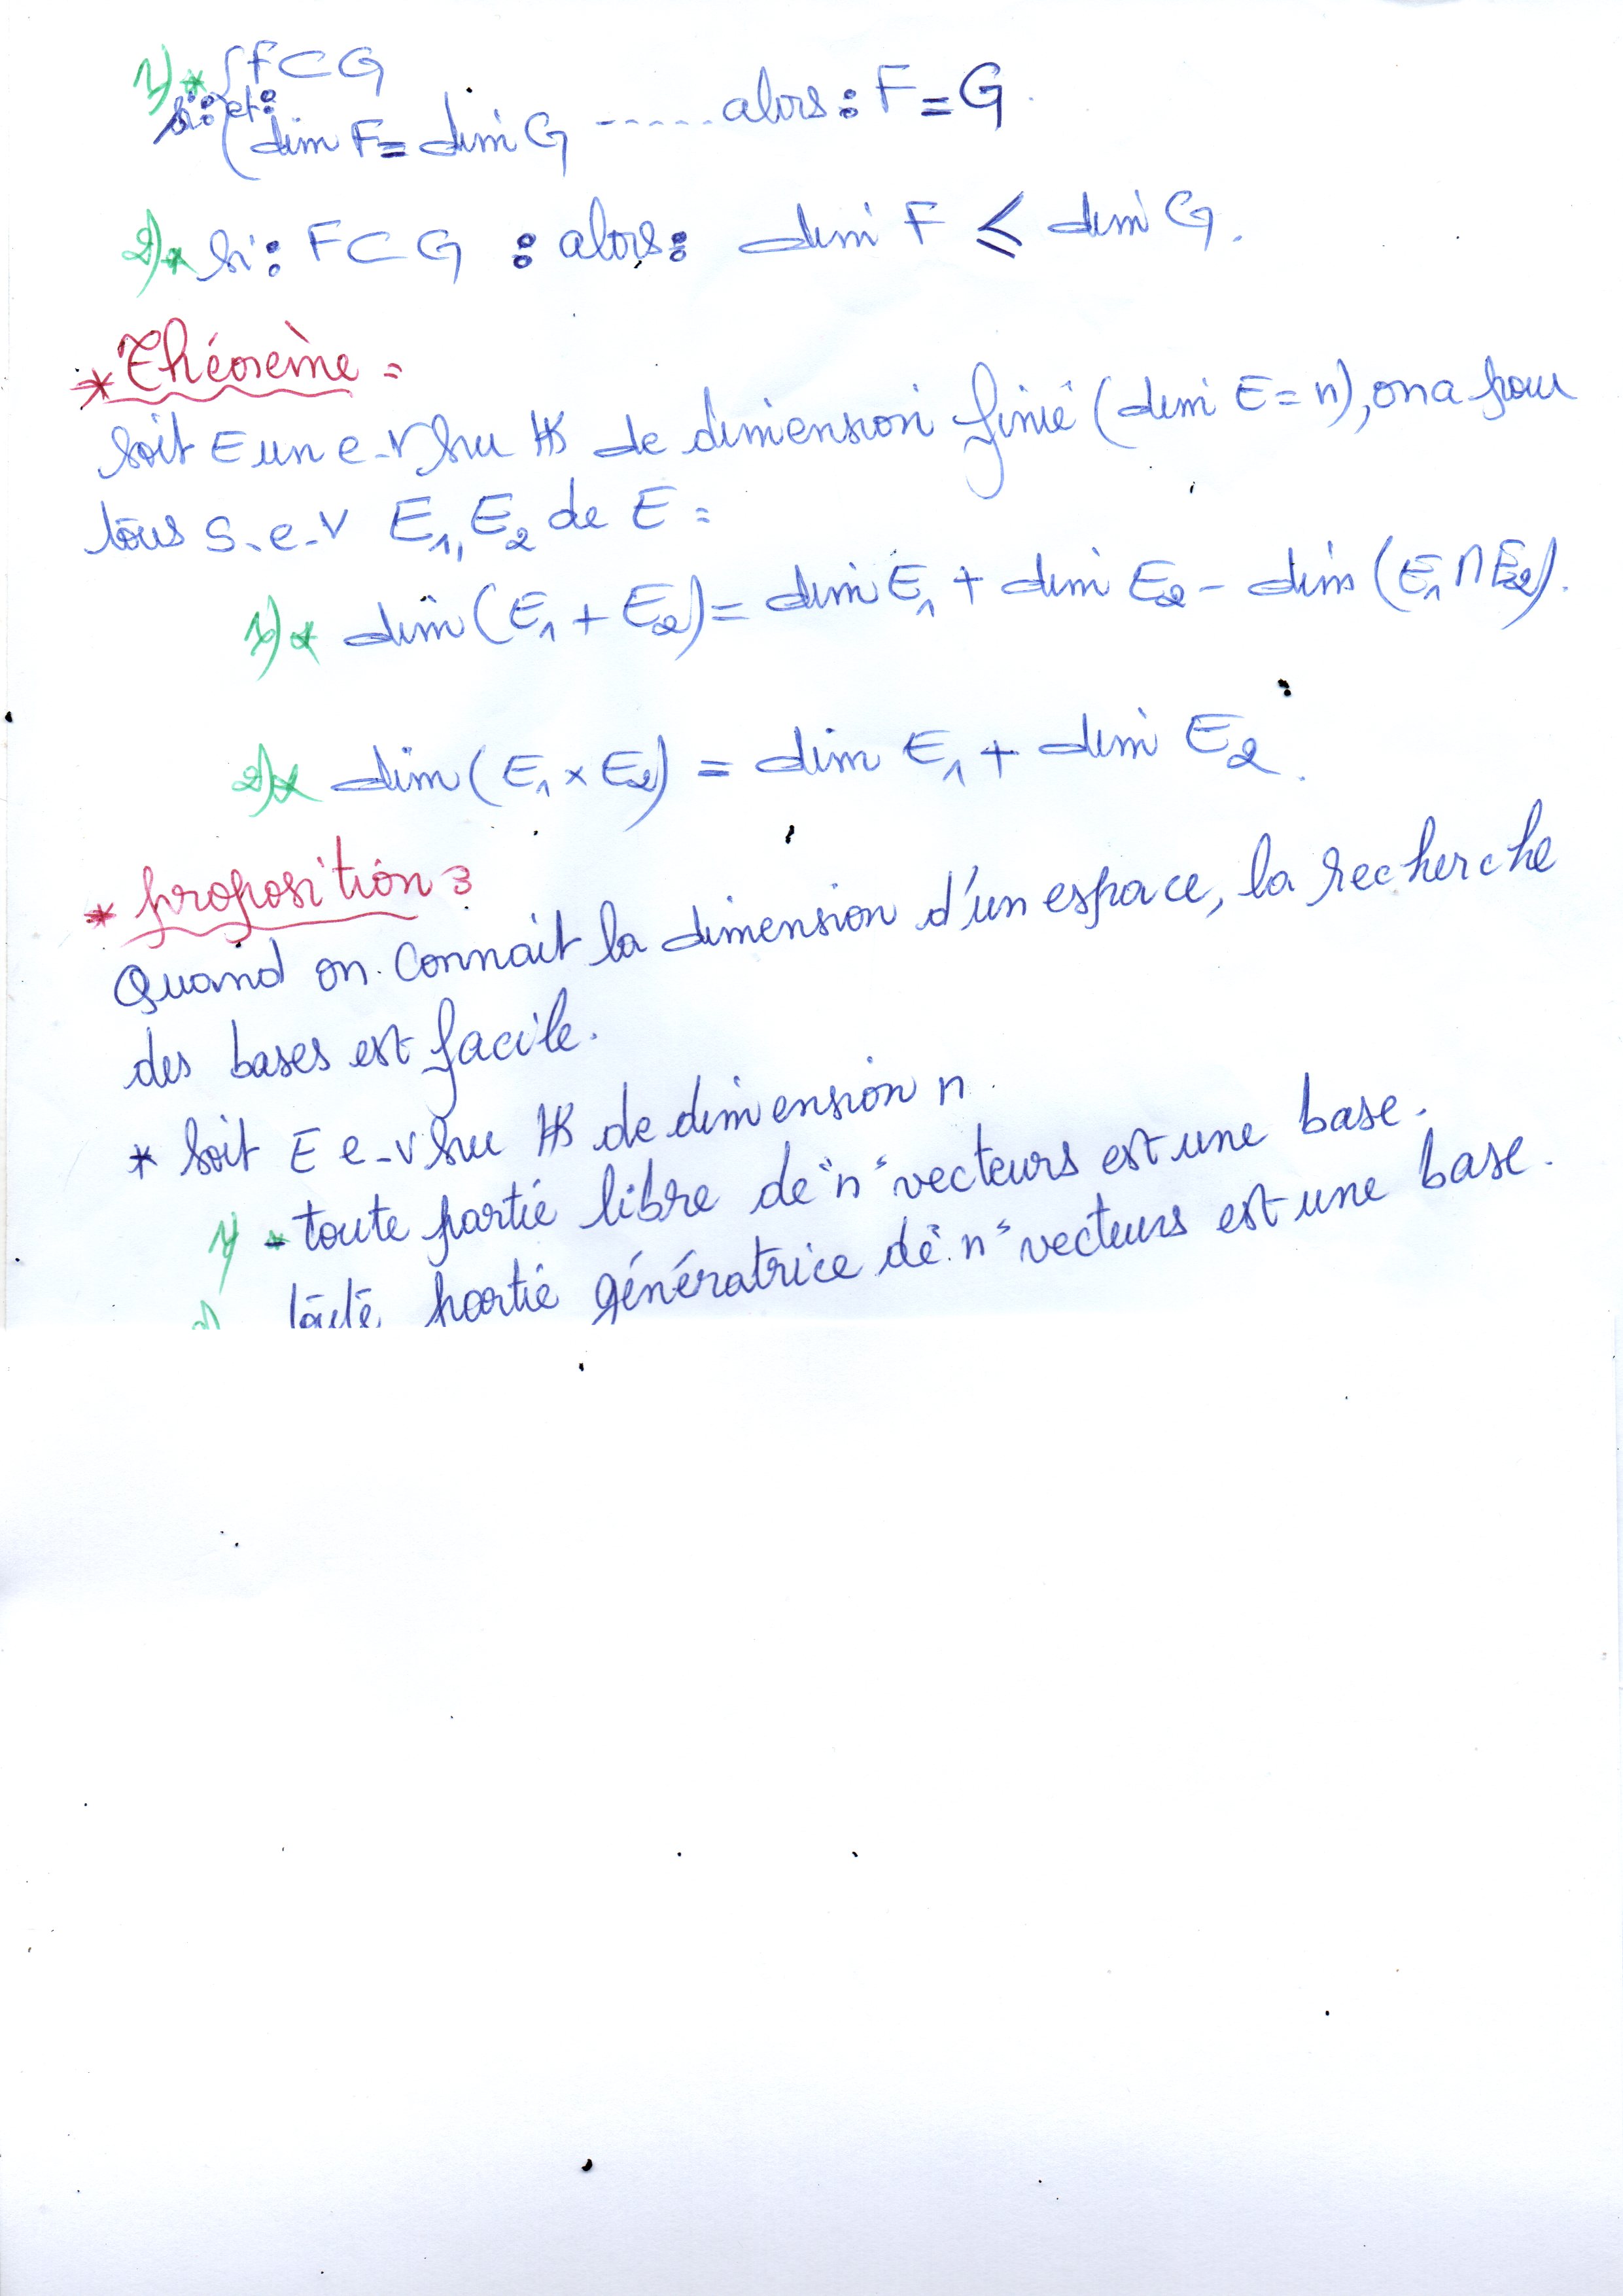 1)* { F ⊂ G
si: et:
dim F = dim G ----- alors: F = G.
2)* si: F ⊂ G : alors: dim F ⩽ dim G.
* Théorème =
soit E un e-v sur IK de dimension finie (dim E = n), on a pour
tous s.e-v E₁, E₂ de E =
1)* dim (E₁ + E₂) = dim E₁ + dim E₂ - dim (E₁ ∩ E₂).
2)* dim (E₁ × E₂) = dim E₁ + dim E₂.
* proposition :
Quand on connait la dimension d'un espace, la recherche
des bases est facile.
* soit E e-v sur IK de dimension n
1) - toute partie libre de "n" vecteurs est une base.
2) toute partie génératrice de "n" vecteurs est une base.